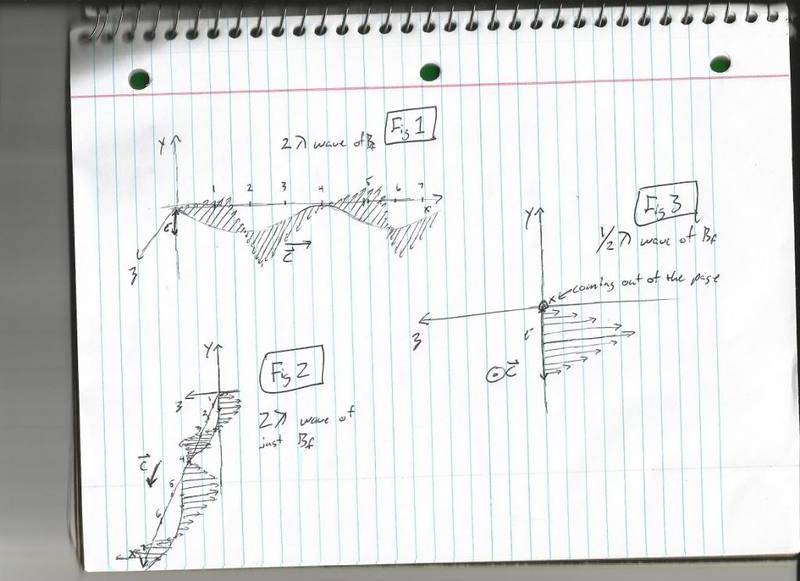 Fig 1
2 λ wave of Bf
y
1 2 3 4 5 6 7
x
c
z
Fig 3
y
1/2 λ wave of Bf
x coming out of the page
z
c
Fig 2
y
z
1
2
3
2 λ wave of
just Bf
c
4
5
6
7
x